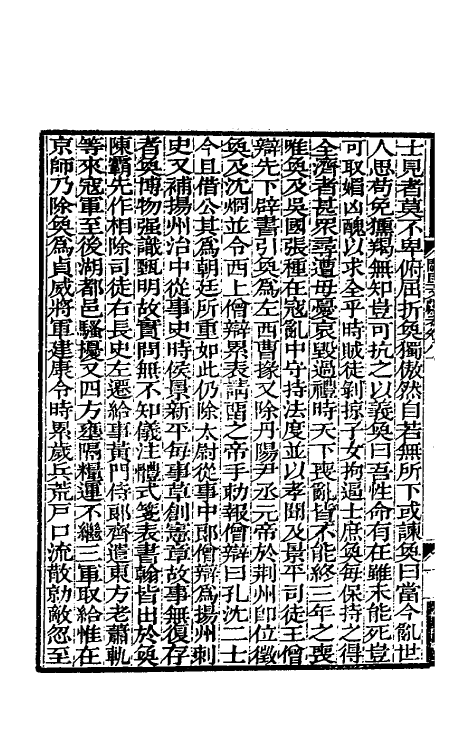 士見者莫不卑俯屈折奐獨傲然自若無所下或諫奐曰當今亂世
人思苟免獯羯無知豈可抗之以義奐曰吾性命有在雖未能死豈
可取媚凶醜以求全乎時賊徒剝掠子女拘逼士庶奐每保持之得
全濟者甚衆尋遭母憂哀毀過禮時天下喪亂皆不能終三年之喪
唯奐及吳國張種在寇亂中守持法度並以孝聞及景平司徒王僧
辯先下辟書引奐爲左西曹掾又除丹陽尹丞元帝於荆州卽位徵
奐及沈烱並令西上僧辯累表請留之帝手勅報僧辯曰孔沈二士
今且借公其爲朝廷所重如此仍除太尉從事中郎僧辯爲揚州刺
史又補揚州治中從事史時侯景新平每事草創憲章故事無復存
者奐博物强識甄明故實問無不知儀注體式箋表書翰皆出於奐
陳霸先作相除司徒右長史左遷給事黃門侍郎齊遣東方老蕭軌
等來寇軍至後湖都邑騷擾又四方壅隔糧運不繼三軍取給惟在
京師乃除奐爲貞威將軍建康令時累歲兵荒戸口流散勍敵忽至